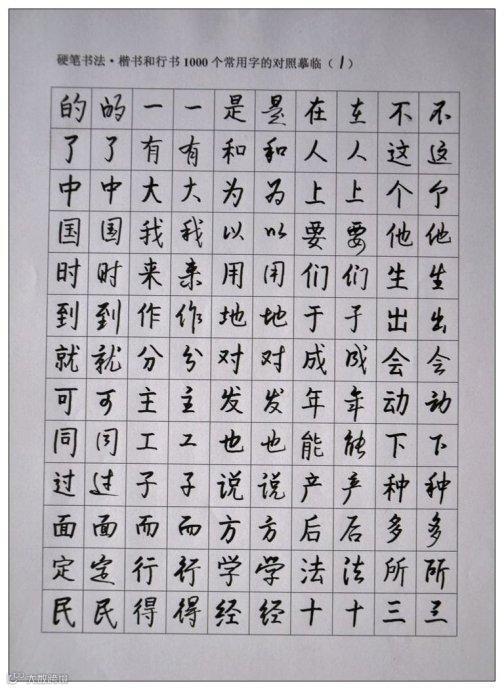 硬笔书法·楷书和行书1000个常用字的对照摹临（1）
的的一一是是在在不不
了了有有和和人人这这
中中大大为为上上个个
国国我我以以要要他他
时时来来用用们们生生
到到作作地地于于出出
就就分分对对成成会会
可可主主发发年年动动
同同工工也也能能下下
过过子子说说产产种种
面面而而方方后后多多
定定行行学学法法所所
民民得得经经十十三三
大数跨境